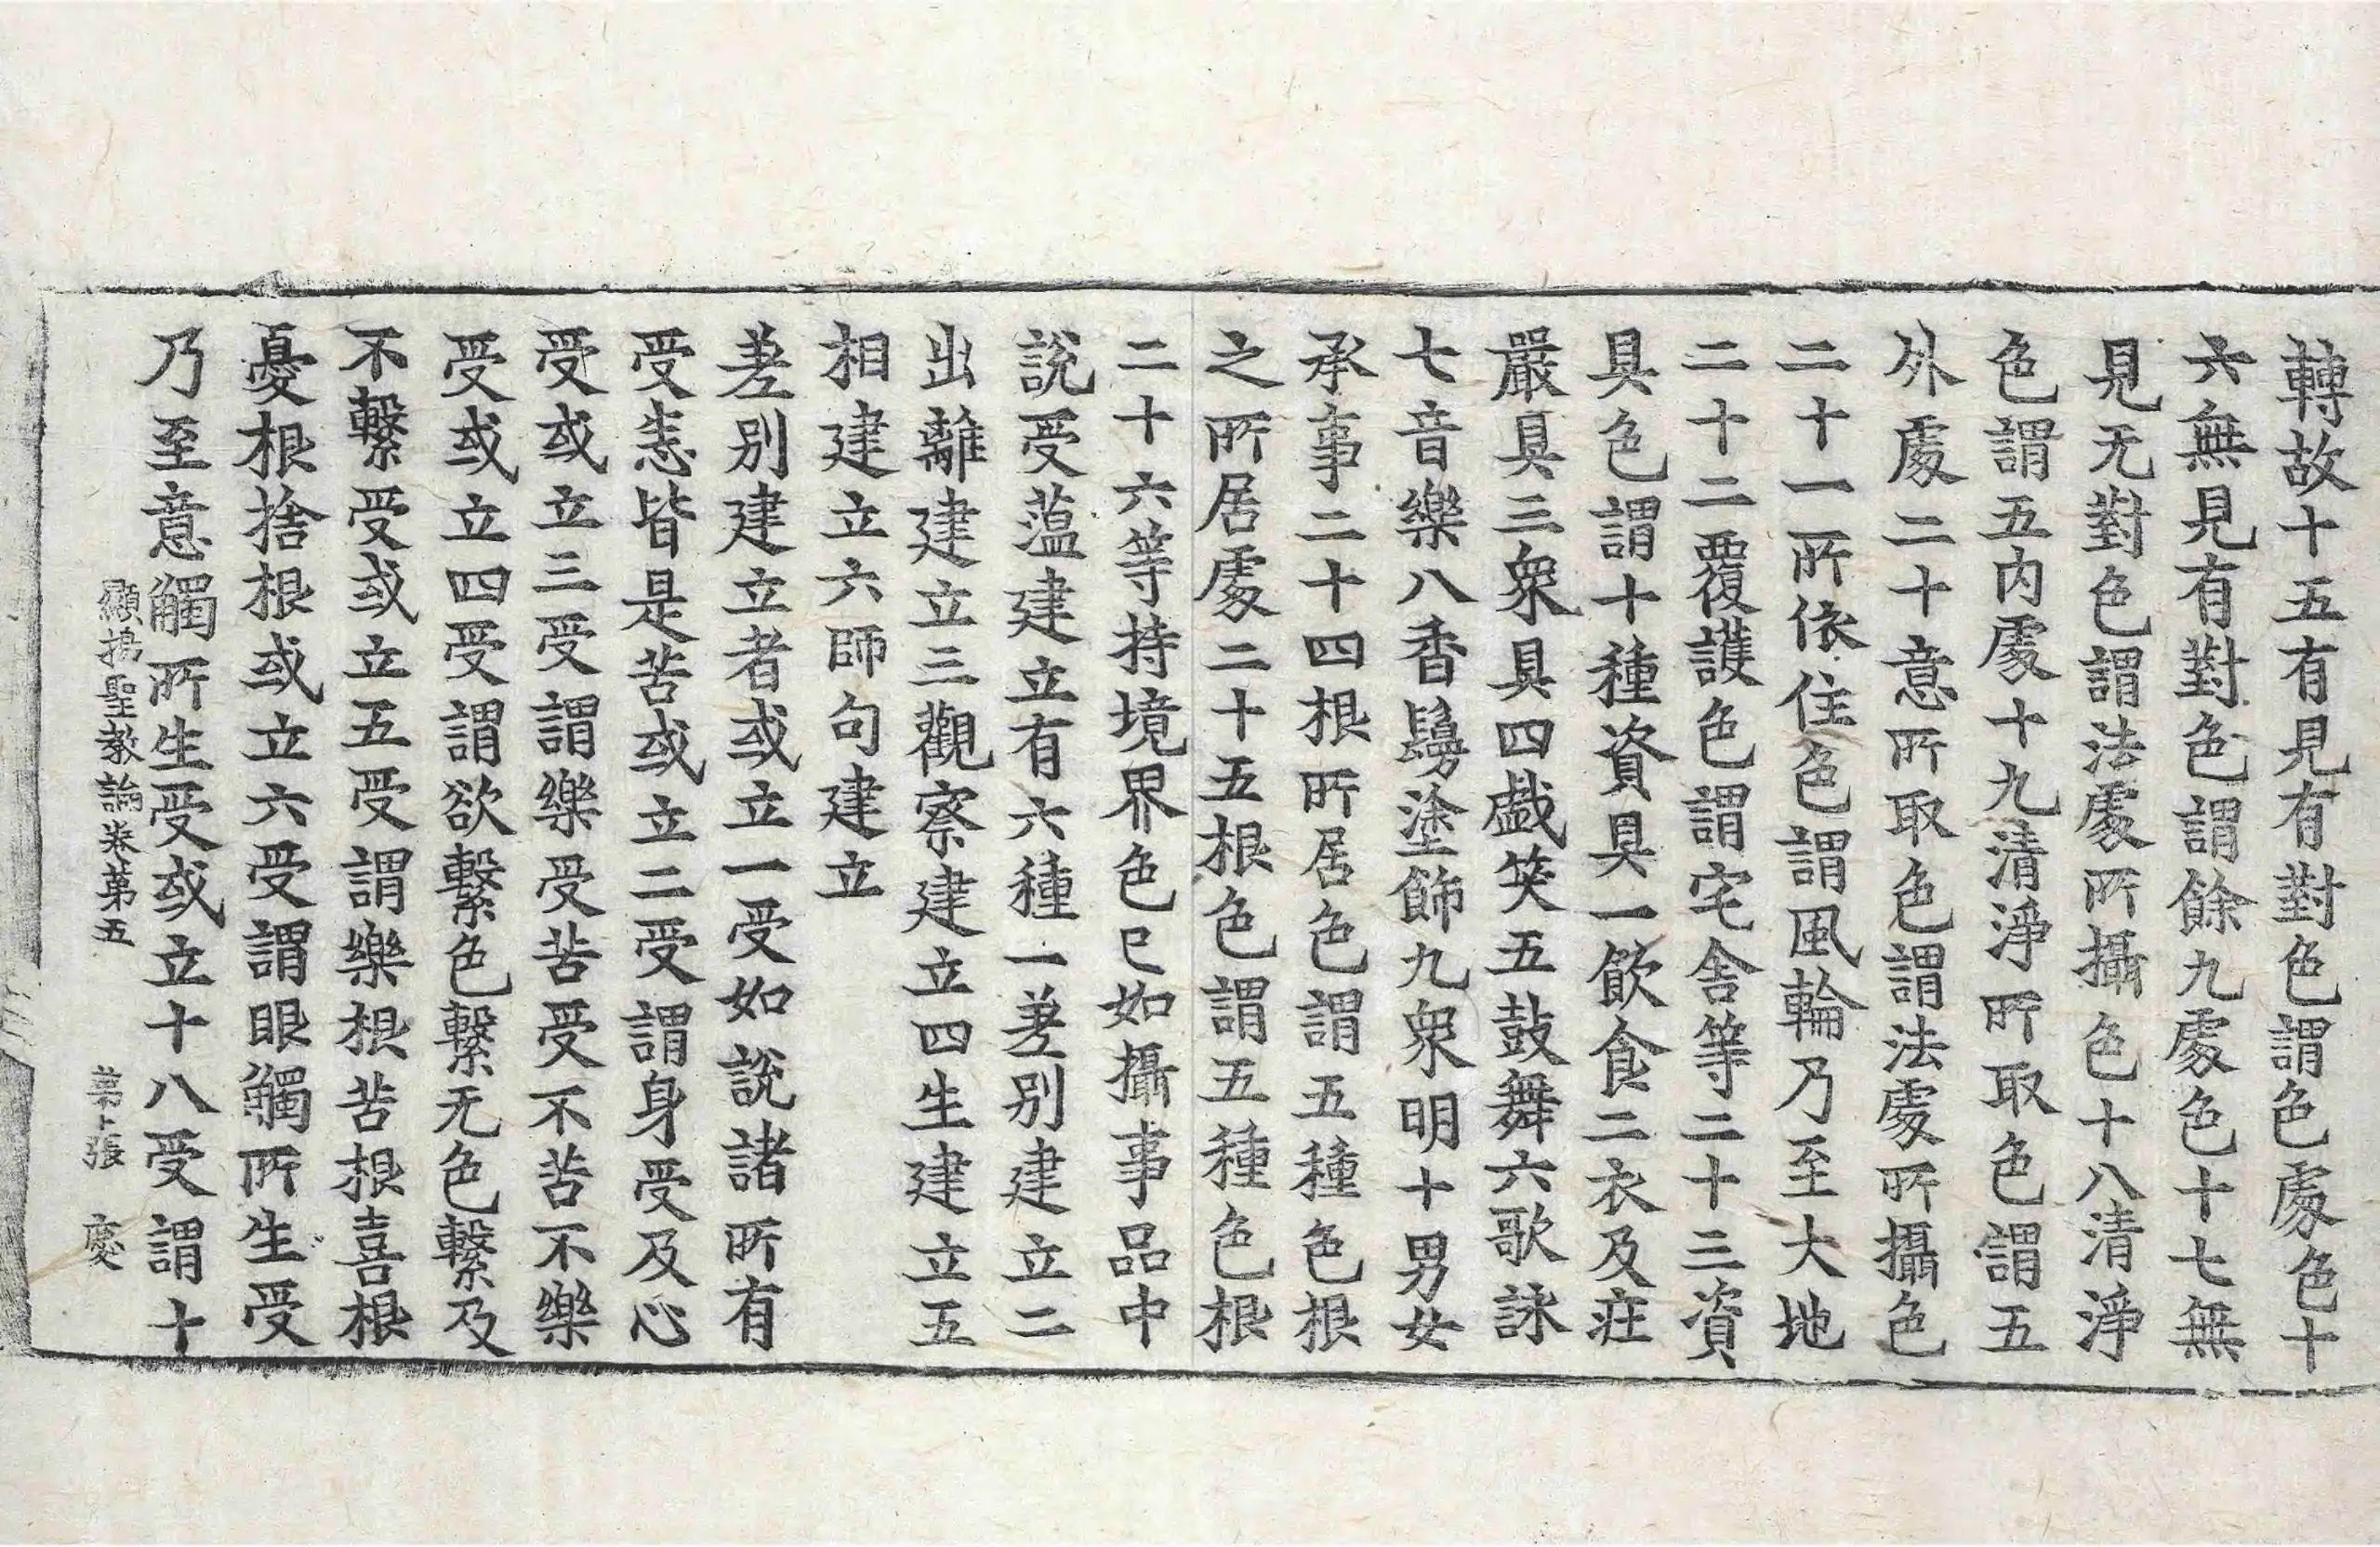 轉故十五有見有對色謂色處色十
六無見有對色謂餘九處色十七無
見无對色謂法處所攝色十八清淨
色謂五内處十九清淨所取色謂五
外處二十意所取色謂法處所攝色
二十一所依住色謂風輪乃至大地
二十二覆護色謂宅舍等二十三資
具色謂十種資具一飲食二衣及莊
嚴具三衆具四戱笑五鼓舞六歌詠
七音樂八香鬘塗飾九衆明十男女
承事二十四根所居色謂五種色根
之所居處二十五根色謂五種色根
二十六等持境界色已如攝事品中
說受薀建立有六種一差别建立二
出離建立三觀察建立四生建立五
相建立六師句建立
差别建立者或立一受如說諸所有
受恚皆是苦或立二受謂身受及心
受或立三受謂樂受苦受不苦不樂
受或立四受謂欲繫色繫无色繫及
不繫受或立五受謂樂根苦根喜根
憂根捨根或立六受謂眼觸所生受
乃至意觸所生受或立十八受謂十
顯揚聖教論卷第五 第十張 處